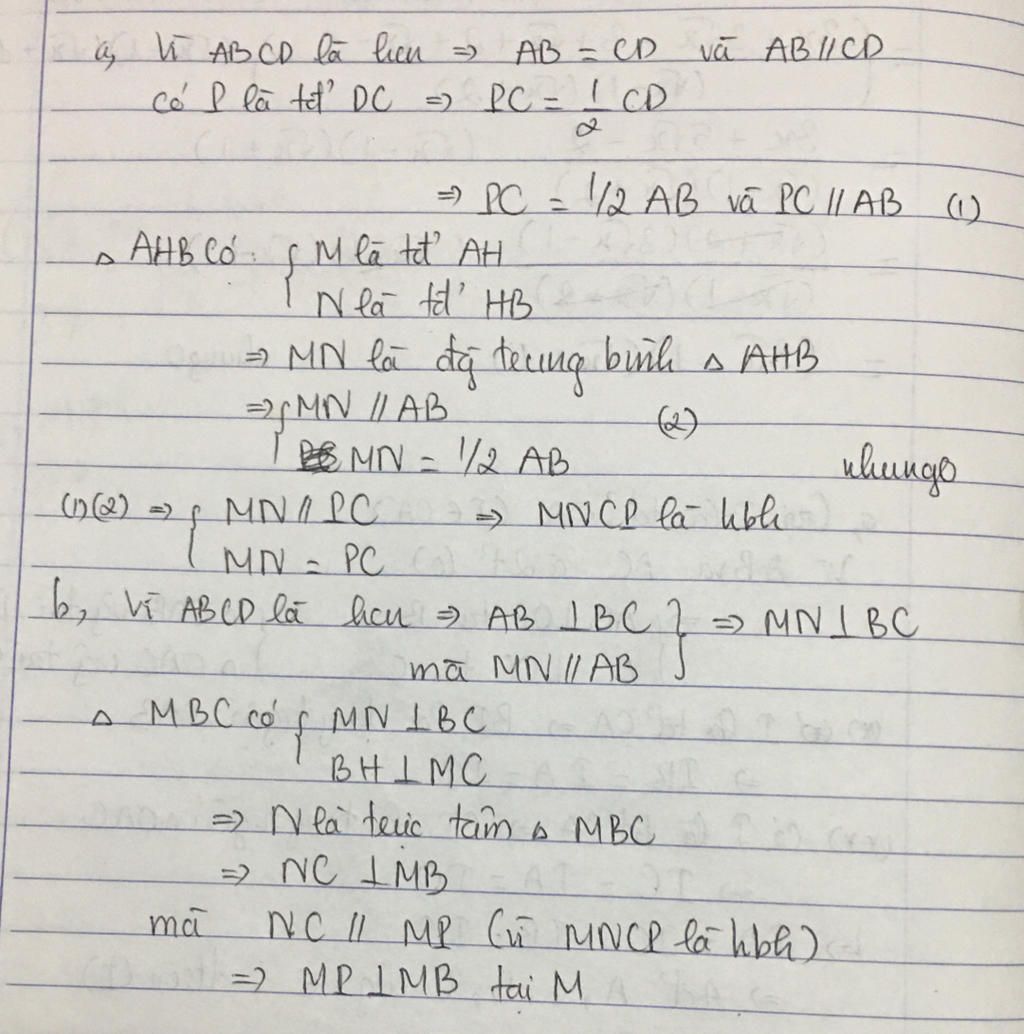 a, Vì ABCD là hcn => AB = CD và AB // CD
có P là tđ' DC => PC = 1/2 CD
=> PC = 1/2 AB và PC // AB (1)
△ AHB có: { M là tđ' AH
N là tđ' HB
=> MN là đg trung bình △ AHB
=> { MN // AB (2)
MN = 1/2 AB
nhungo
(1)(2) => { MN // PC => MNCP là hbh
MN = PC
b, Vì ABCD là hcn => AB ⊥ BC } => MN ⊥ BC
mà MN // AB
△ MBC có { MN ⊥ BC
BH ⊥ MC
=> N là trực tâm △ MBC
=> NC ⊥ MB
mà NC // MP (vì MNCP là hbh)
=> MP ⊥ MB tại M